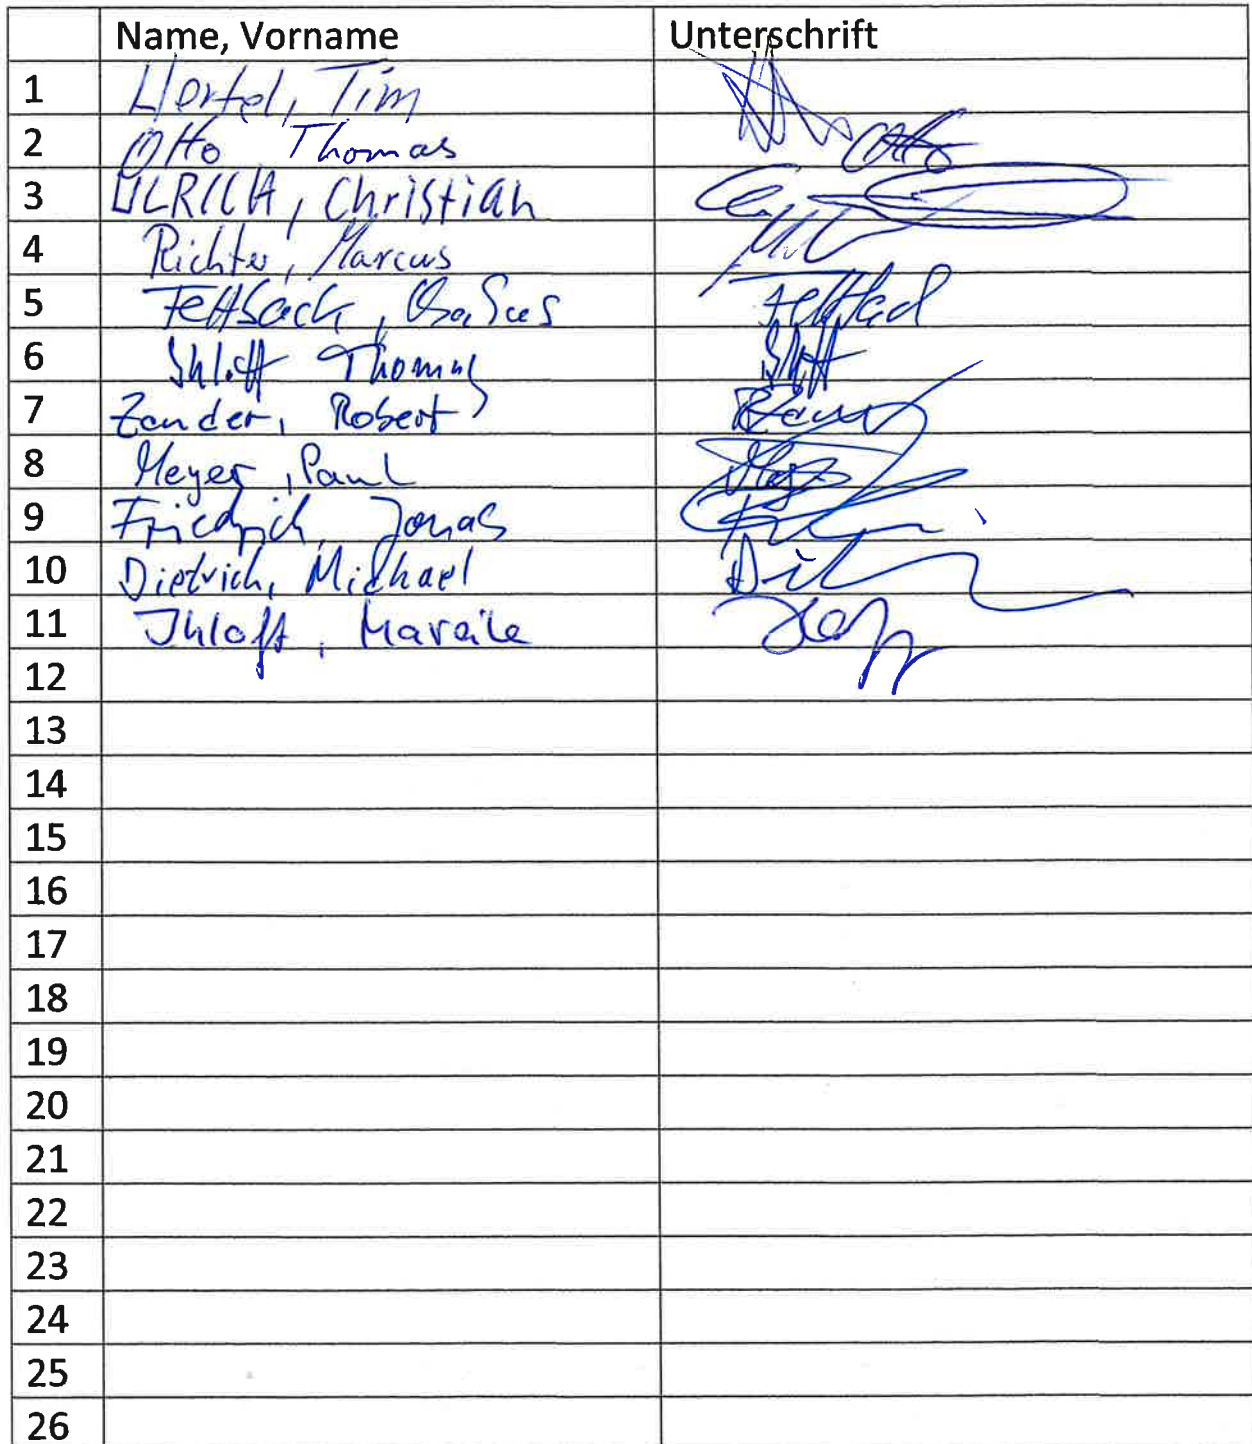 Name, Vorname Unterschrift
1 Hertel, Tim
2 Otto Thomas Otto
3 ULRICH, Christian
4 Richter, Marcus
5 Fettback,
6 Thomas
7 Zander, Robert
8 Meyer, Paul
9 Friedrich, Jonas
10 Dietrich, Michael
11 Ihloff, Mareike
12
13
14
15
16
17
18
19
20
21
22
23
24
25
26